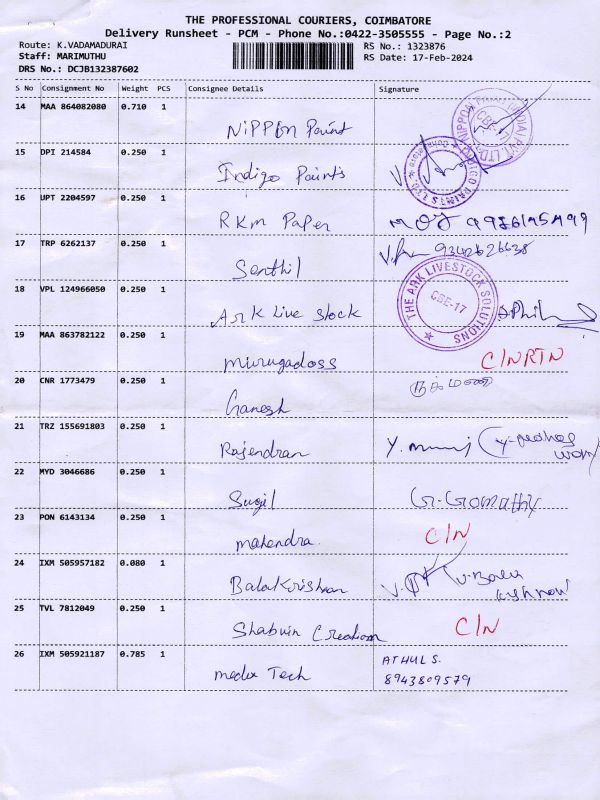 THE PROFESSIONAL COURIERS, COIMBATORE
Delivery Runsheet - PCM - Phone No.:0422-3505555 - Page No.:2
Route: K.VADAMADURAI
RS No.: 1323876
Staff: MARIMUTHU
RS Date: 17-Feb-2024
DRS No.: DCJB132387602
S No Consignment No Weight PCS Consignee Details Signature
14 MAA 864082080 0.710 1
Nippon Paint
CBE-17
15 DPI 214584 0.250 1
Indigo Paints
INDIGO PAINTS LTD.
16 UPT 2204597 0.250 1
RKM Paper
17 TRP 6262137 0.250 1
Senthil 9342626638
18 VPL 124966050 0.250 1
Ark Live Stock
THE ARK LIVESTOCK SOLUTIONS
CBE-17
19 MAA 863782122 0.250 1
Murugadoss C/NRTN
20 CNR 1773479 0.250 1
Ganesh
21 TRZ 155691803 0.250 1
Rajendran
22 MYD 3046686 0.250 1
Sugil G. Gomathy
23 PON 6143134 0.250 1
mahendra. C/N
24 IXM 505957182 0.080 1
Balakrishnan
25 TVL 7812049 0.250 1
Shabwin Creation C/N
26 IXM 505921187 0.785 1
Medix Tech ATHUL S.
8943809579